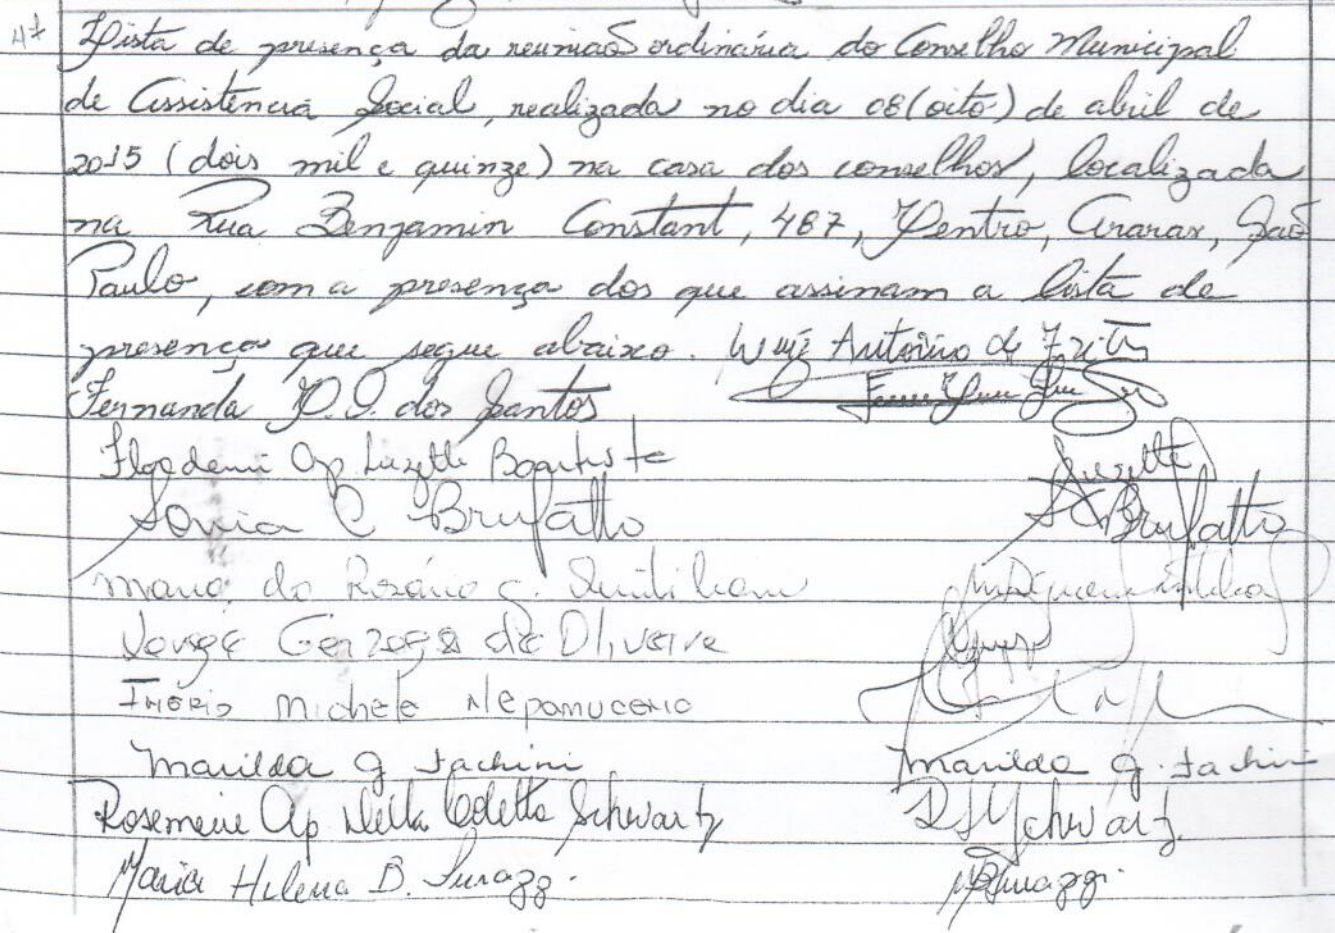 47
Lista de presença da reunião ordinária do Conselho Municipal
de Assistência Social, realizada no dia 08 (oito) de abril de
2015 (dois mil e quinze) na casa dos conselhos, localizada
na Rua Benjamin Constant, 487, Centro, Araras, São
Paulo, com a presença dos que assinam a lista de
presença que segue abaixo. Luiz Antônio de
Fernanda P. G. dos Santos
Ap. Lizette Baptista
Sonia C Brufatto S C Brufatto
Maria do Rosário G.
Gonzaga de Oliveira
Michele Nepomuceno
Marilda G Fachini Marilda G. Fachini
Rosemeire Ap Della Coletta Schwartz Schwartz
Maria Helena B. Surazzi.